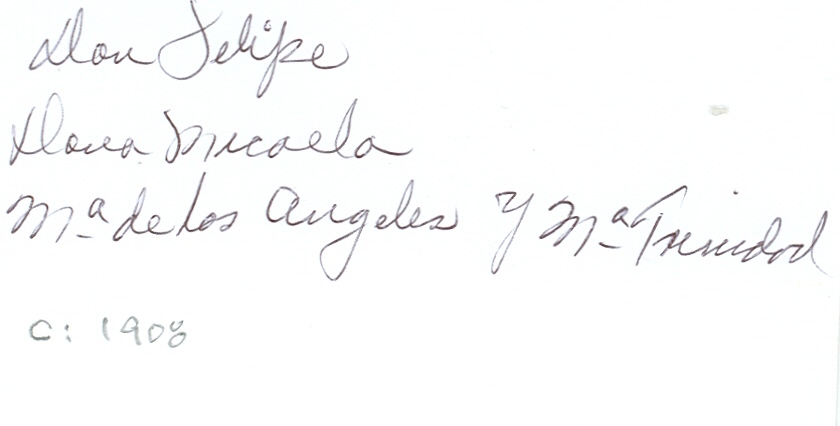 Don Felipe
Dona Micaela
Mª de los Angeles y Mª Trinidad
c: 1908